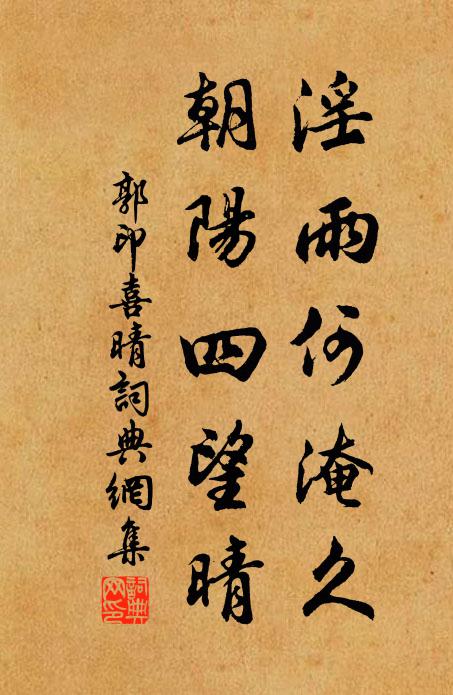 淫雨何淹久
朝陽四望晴
郭印喜晴詞典網集
詞典網印